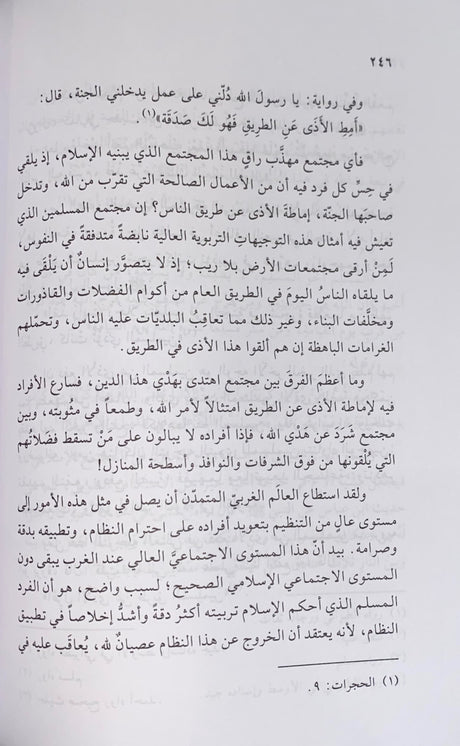 ٢٤٦
وفي رواية: يا رسولَ الله دُلّني على عمل يدخلني الجنة، قال:
«أَمِطِ الأَذَى عَنِ الطريقِ فَهُو لَكَ صَدَقَة»(١).
فأي مجتمع مهذَّب راقٍ هذا المجتمع الذي يبنيه الإسلام، إذ يلقي
في حِسِّ كل فرد فيه أن من الأعمال الصالحة التي تقرّب من الله، وتدخل
صاحبَها الجنّة، إماطةَ الأذى عن طريق الناس؟ إن مجتمع المسلمين الذي
تعيش فيه أمثال هذه التوجيهاتِ التربوية العالية نابضةً متدفقةً في النفوس،
لَمِنْ أرقى مجتمعات الأرض بلا ريب؛ إذ لا يتصوَّر إنسانٌ أن يَلْقَى فيه
ما يلقاه الناسُ اليومَ في الطريق العام من أكوام الفضلات والقاذورات
ومخلَّفات البناء، وغير ذلك مما تعاقِبُ البلديّات عليه الناس، وتحمّلهم
الغرامات الباهظة إن هم ألقوا هذا الأذى في الطريق.
وما أعظمَ الفرقَ بين مجتمع اهتدى بهَدْيِ هذا الدين، فسارع الأفراد
فيه لإماطة الأذى عن الطريق امتثالاً لأمر الله، وطمعاً في مثُوبته، وبين
مجتمع شَرَدَ عن هَدْيِ الله، فإذا أفراده لا يبالون على مَنْ تسقط فضَلاتُهم
التي يُلْقونها من فوق الشرفات والنوافذ وأسطحة المنازل!
ولقد استطاع العالَم الغربيّ المتمدّن أن يصل في مثل هذه الأمور إلى
مستوى عالٍ من التنظيم بتعويد أفراده على احترام النظام، وتطبيقه بدقة
وصرامة. بيد أنّ هذا المستوى الاجتماعيَّ العالي عند الغرب يبقى دون
المستوى الاجتماعي الإسلامي الصحيح؛ لسبب واضح، هو أن الفرد
المسلم الذي أحكم الإسلام تربيته أكثرُ دقةً وأشدُّ إخلاصاً في تطبيق
النظام، لأنه يعتقد أن الخروج عن هذا النظام عصيانٌ لله، يُعاقَب عليه في
(١) الحجرات: ٩.